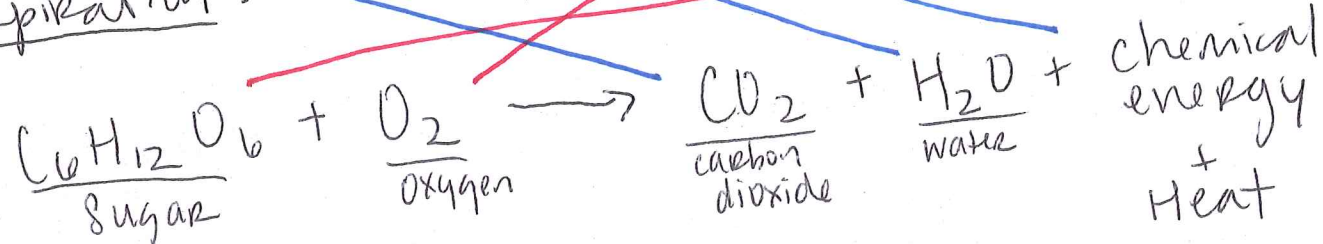 C6H12O6 + O2 → CO2 + H2O + chemical energy + Heat
sugar oxygen carbon dioxide water